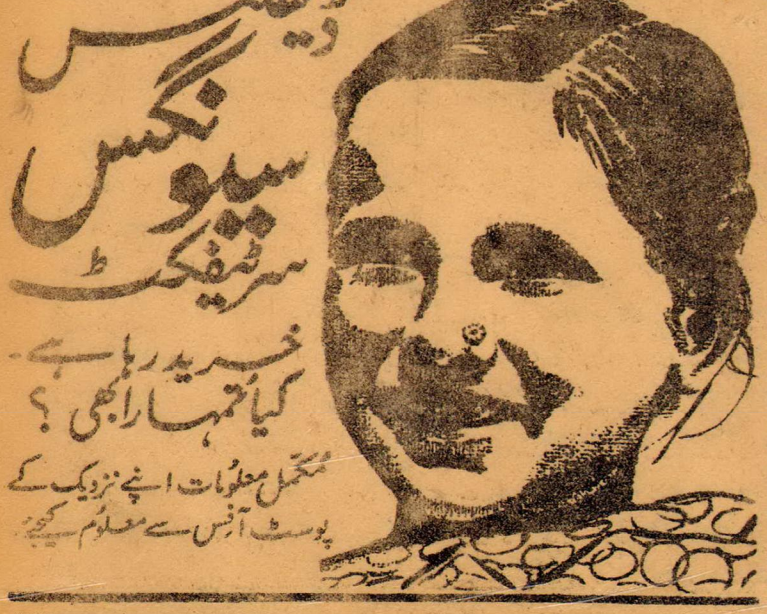 ڈیفنس
سیونگس
سرٹیفکٹ
خرید رہا ہے۔
کیا تمہارا بھی ؟
مکمّل معلوُمات اپنے نزدیک کے
پوسٹ آفِس سے معلوُم کیجیے